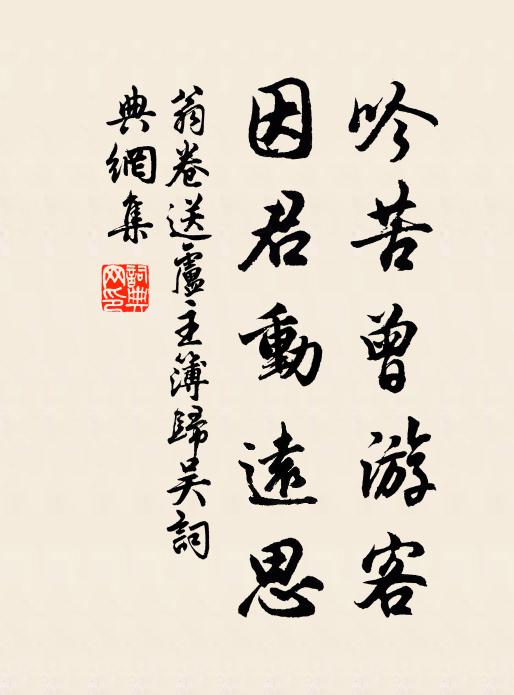 吟苦曾游客
因君動遠思
翁卷送盧主簿歸吴詞
典網集
詞典网印